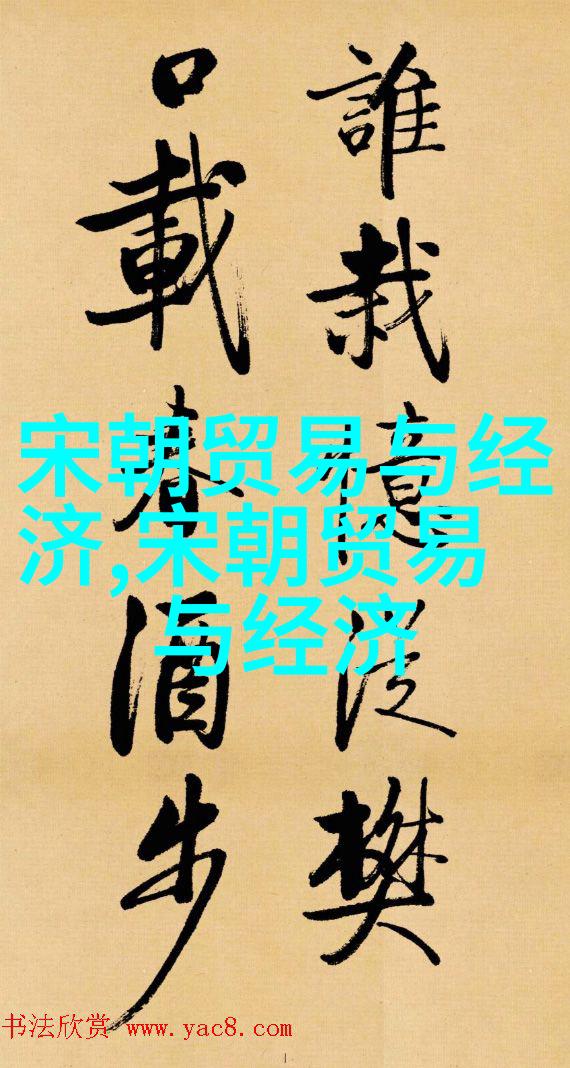 誰栽憶從樊
口載春酒步
宋朝贸易与经
济,宋朝贸易
与经济
书法欣赏 www.yac8.com